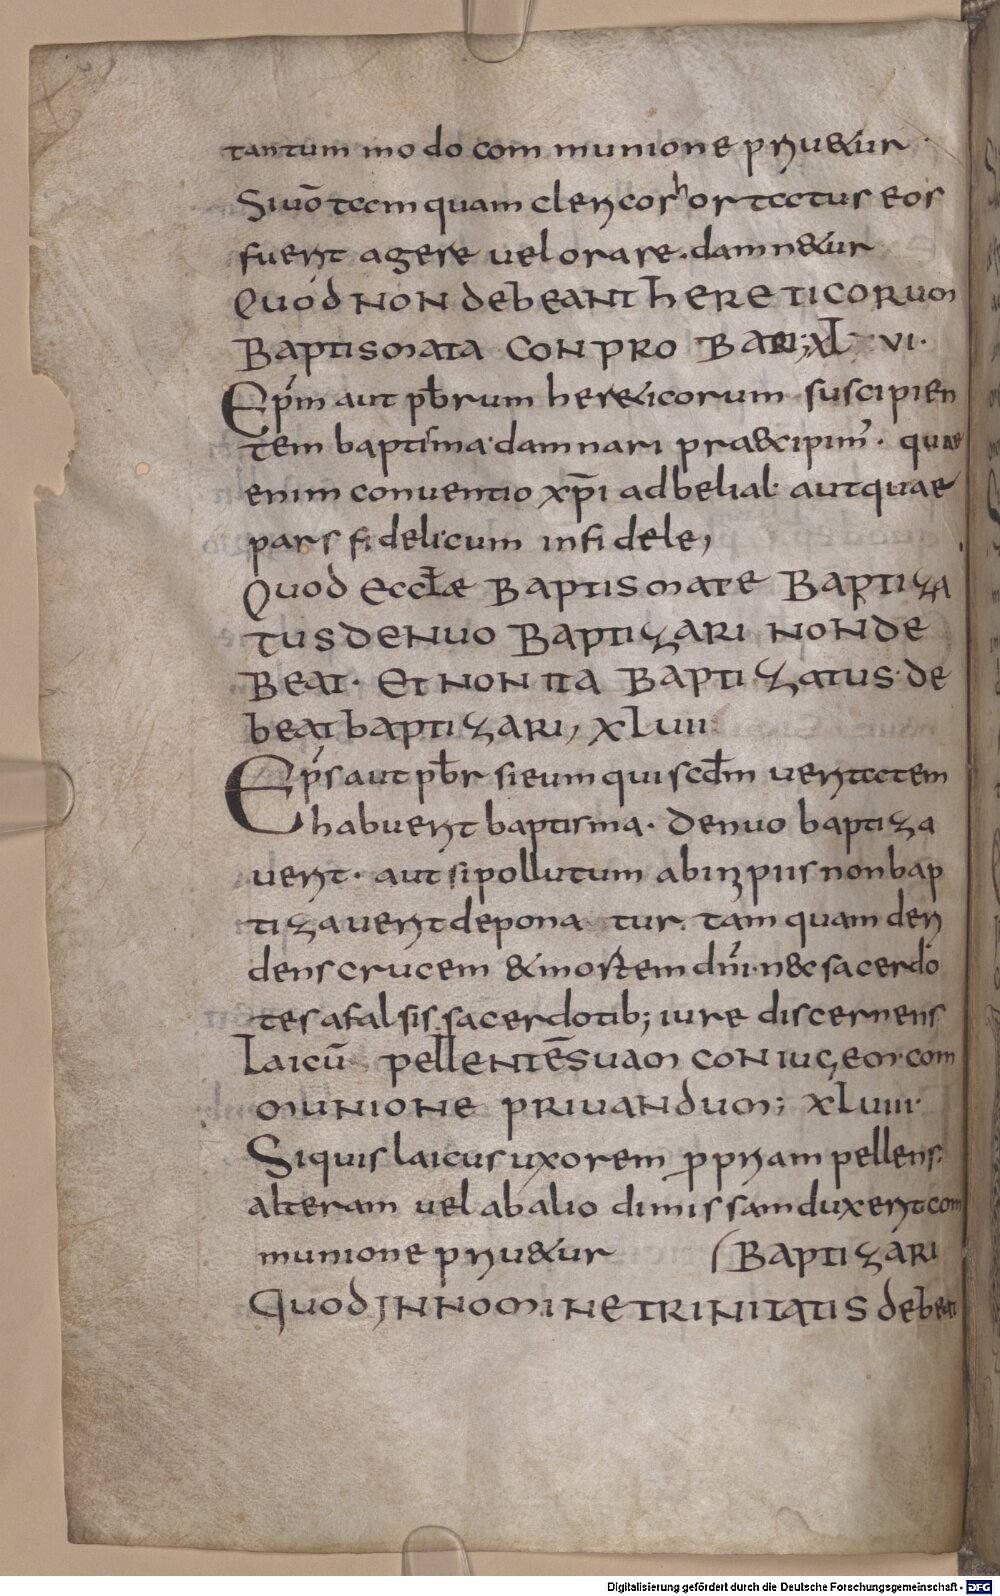 tantum modo communione priuetur.
Siuō tamquam clericos hortatus eos
fuerit agere vel orare. damnetur
Quod non debeant hereticorum
Baptismata conprobari; xL vi.
Ep̄m aut pb̄rum hereticorum suscipien
tem baptisma damnari praecipim'. quae
enim conuentio xp̄i ad belial. aut quae
pars fideli cum infidele,
Quod eccl̄ae Baptismate Baptiza
tus denuo Baptizari non de
beat. Et non ita Baptizatus de
beat baptizari, xLvii
Ep̄s aut pb̄r si eum qui scd̄m ueritatem
habuerit baptisma. denuo baptiza
uerit. aut si pollutum ab inpiis non bap
tizauerit deponatur. tamquam deri
dens crucem & mortem dn̄i. n&c sacerdo
tes a falsis sacerdotib; iure discernens
Laicū pellentē suam coniugem com
munione priuandum; xLviii.
Siquis laicus uxorem propriam pellens.
alteram vel ab alio dimissam duxerit com
munione priu&ur (Baptizari
Quod in nomine trinitatis debeat
Digitalisierung gefördert durch die Deutsche Forschungsgemeinschaft - DFG